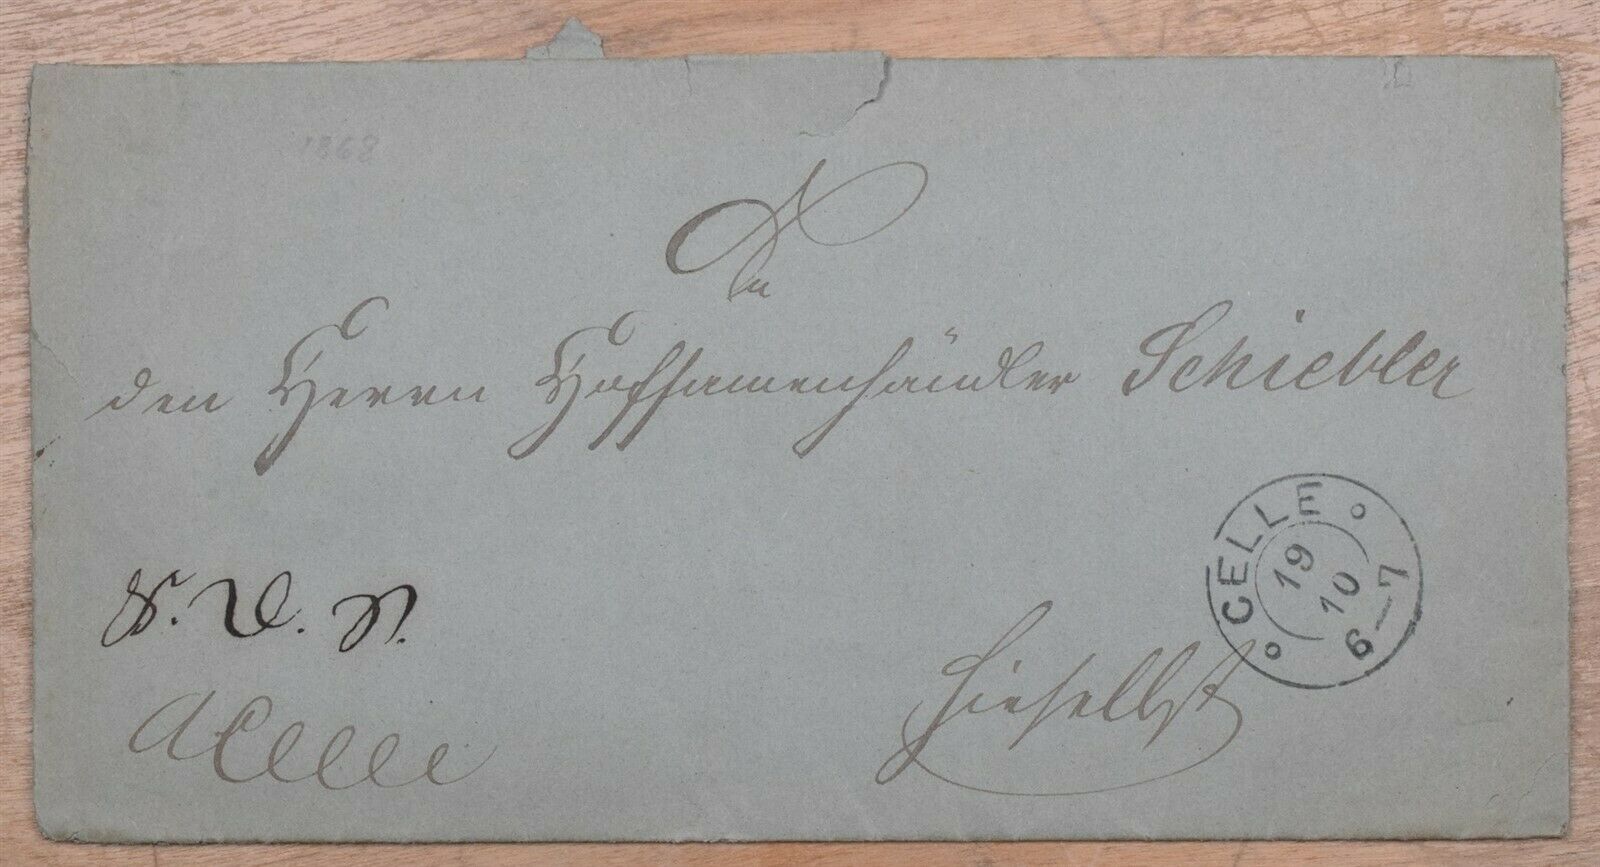 1868
An
den Herrn Hofsamenhändler Schiebler
CELLE
19
10
6—7
hieselbst